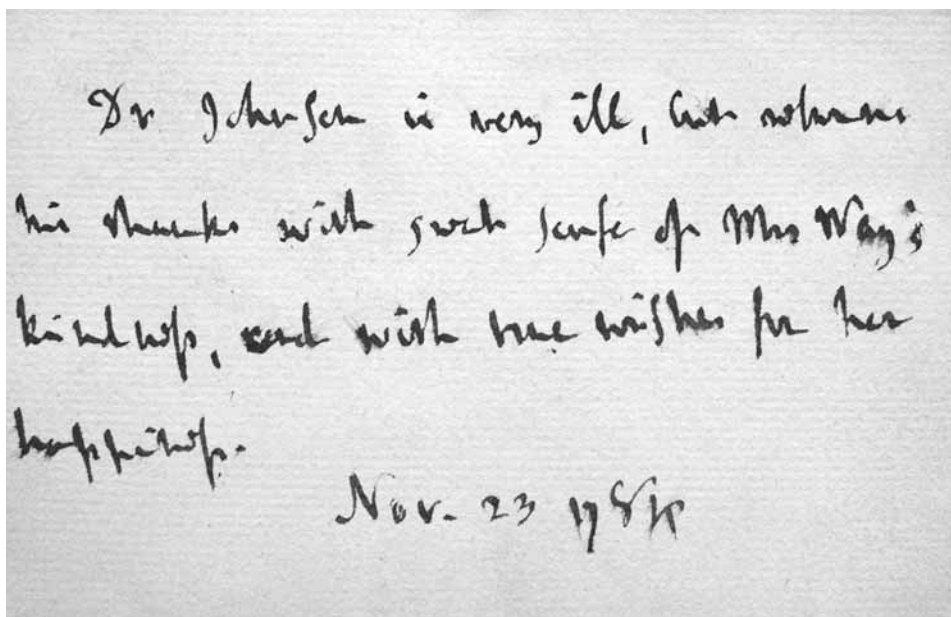 Dr Johnson is very ill, but returns
his thanks with great sense of Mrs Way's
kindness, and with true wishes for her
happiness.
Nov. 23 1784